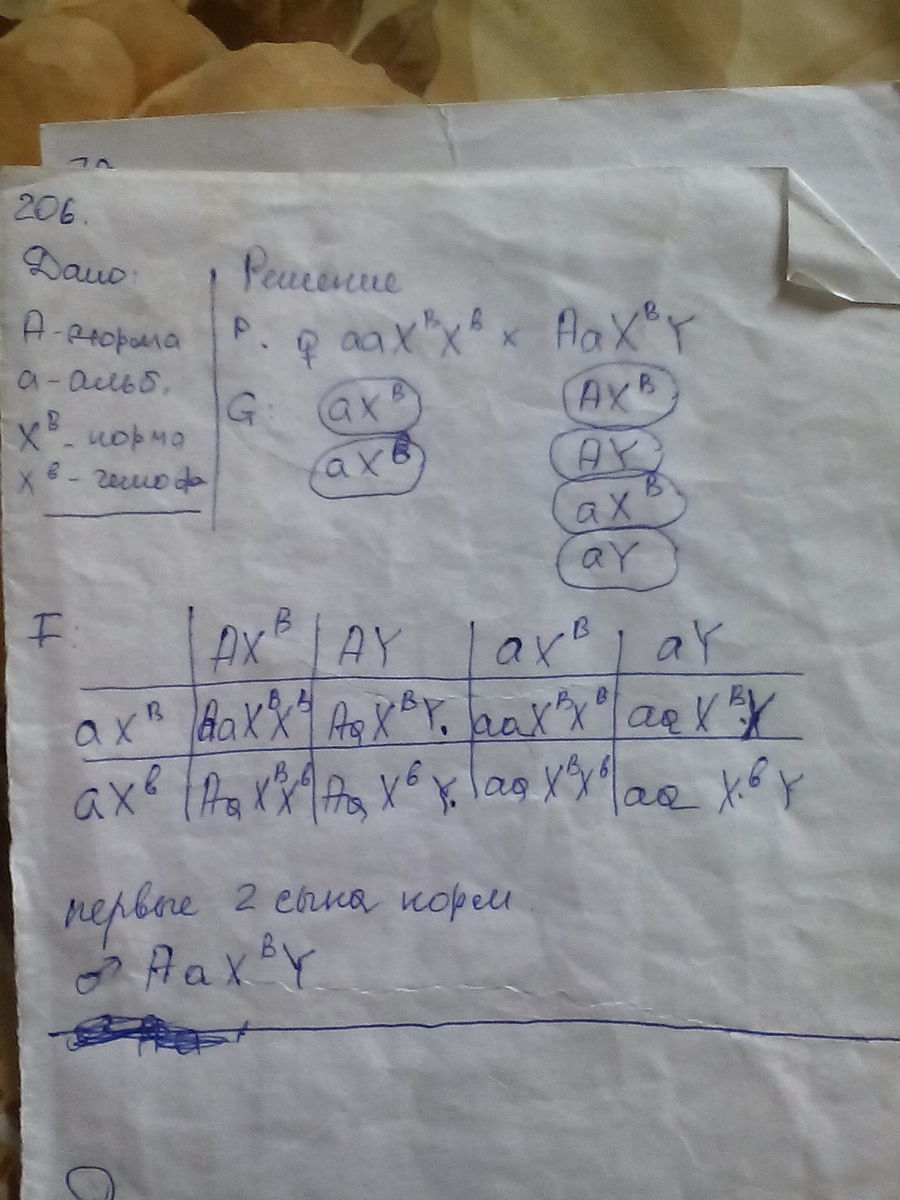 206.
Дано: Решение
А - норма
а - альб.
X^B - норма
X^в - гемоф
P. ♀ aaX^BX^в × AaX^BY
G: aX^B AX^B
aX^в AY
aX^B
aY
F: AX^B AY aX^B aY
aX^B AaX^BX^B AaX^BY. aaX^BX^B aaX^BY
aX^в AaX^BX^в AaX^вY. aaX^BX^в aaX^вY
первые 2 сына норм.
♂ AaX^BY